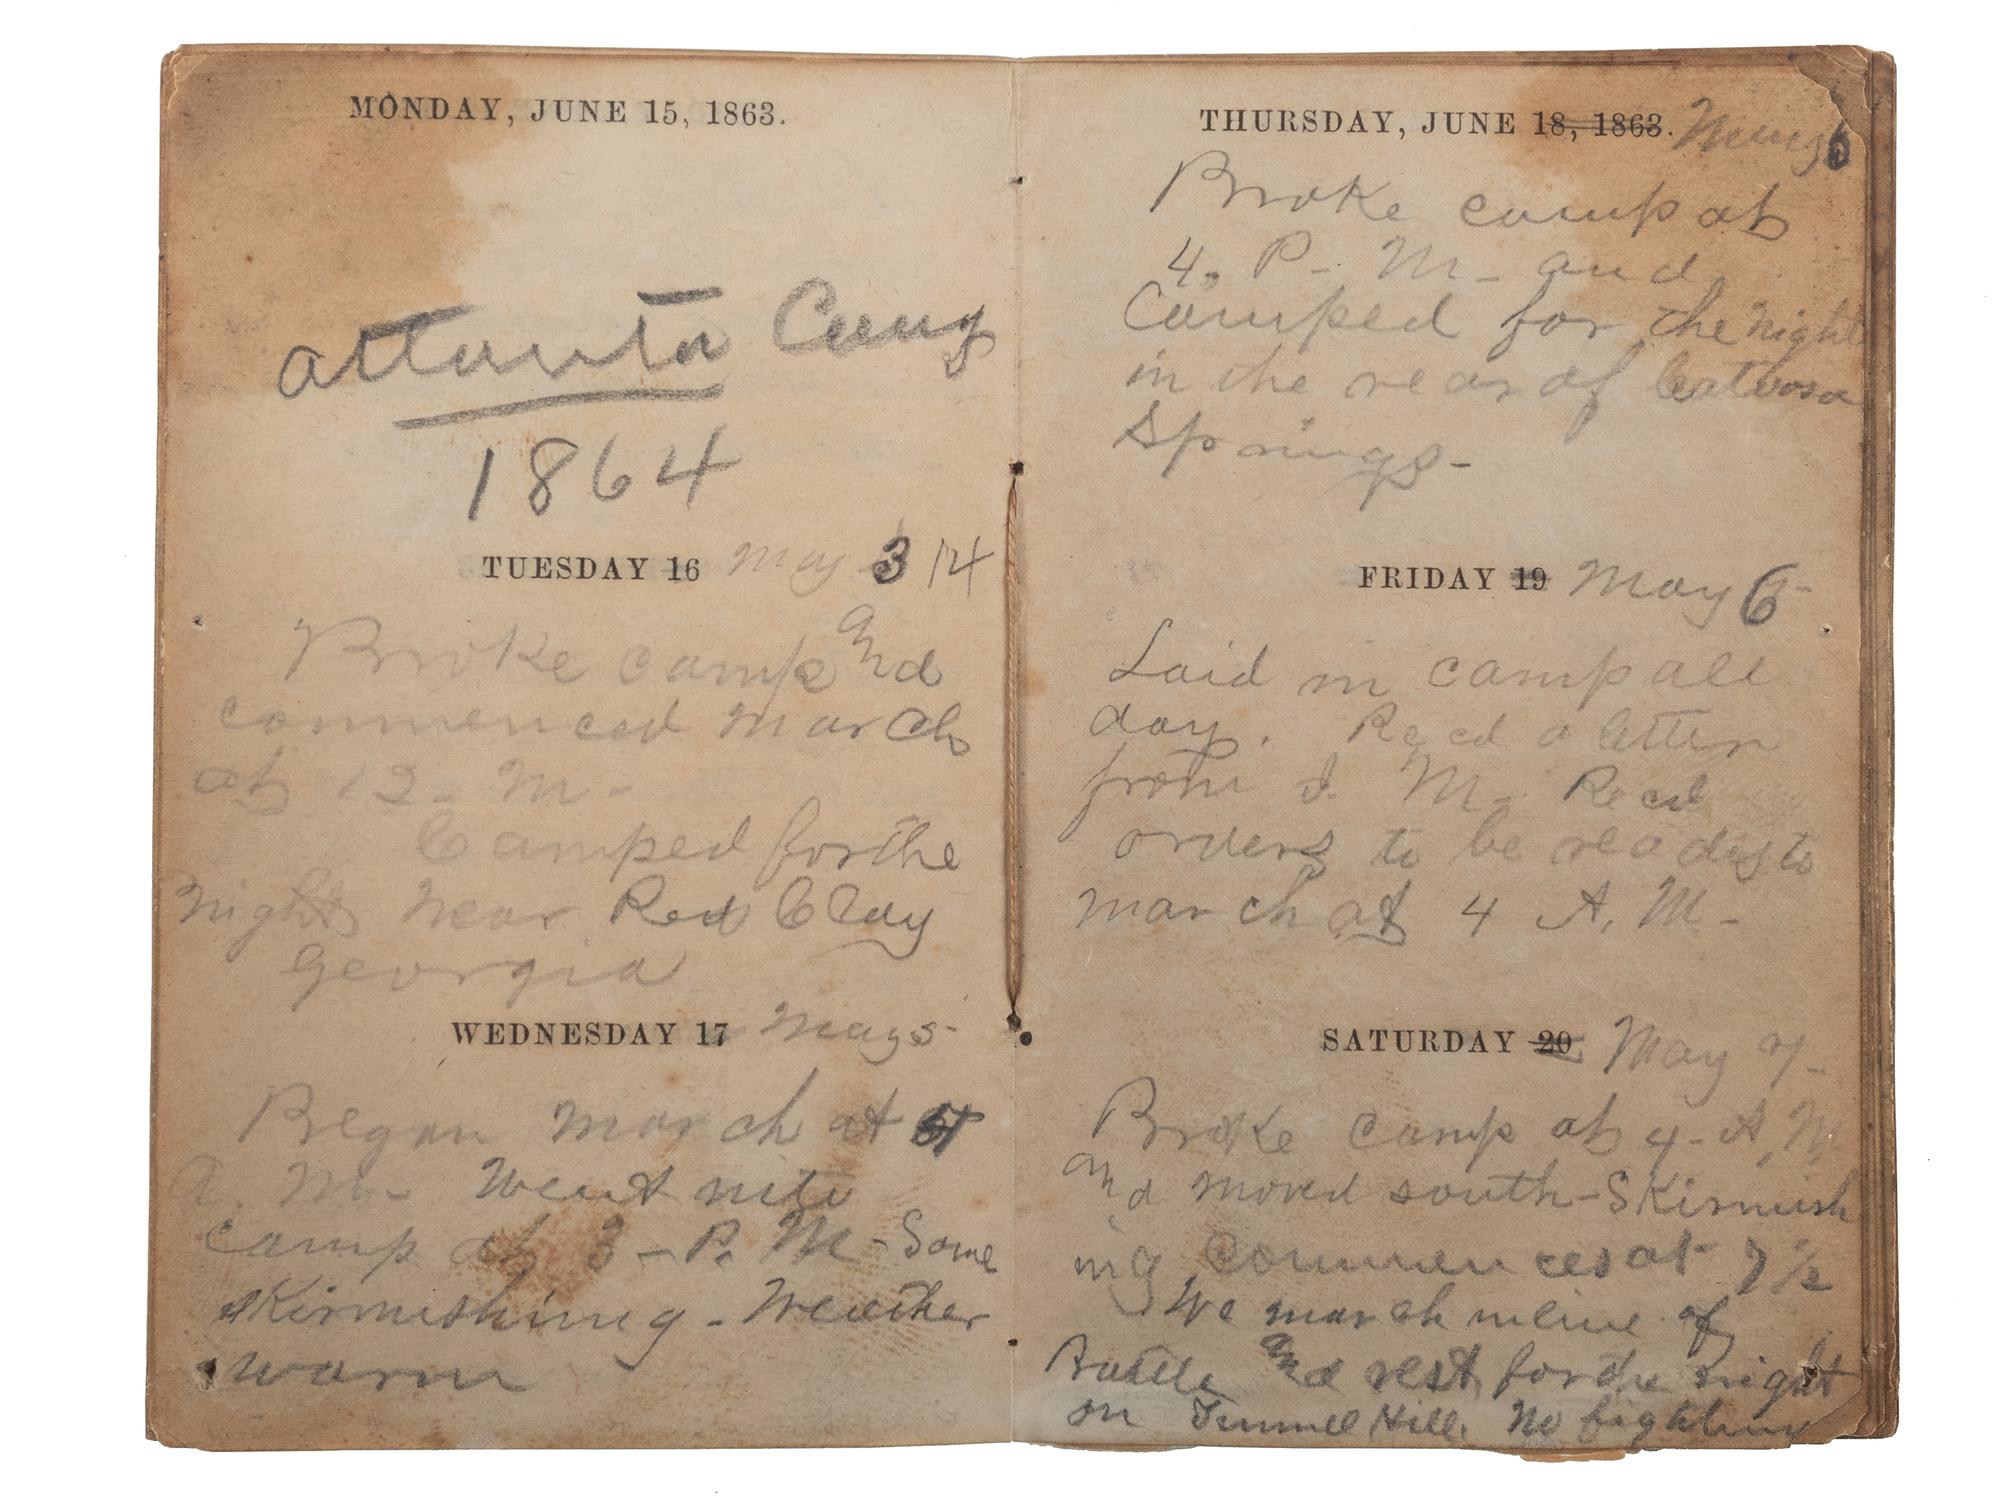 MONDAY, JUNE 15, 1863.
Atlanta Camp
1864
TUESDAY 16 May 3 14
Broke camp and
commenced march
at 12- M-
Camped for the
night near Red Clay
Georgia
WEDNESDAY 17 May 5-
Began march at
A. M.- Went into
camp at 3 - P. M - Some
skirmishing - Weather
warm
THURSDAY, JUNE 18, 1863.
Broke camp at
4. P- M- and
Camped for the night
in the rear of Catoosa
Springs-
FRIDAY 19 May 6-
Laid in camp all
day. Recd a letter
from J. M- Recd
orders to be ready to
march at 4 A. M-
SATURDAY 20 May 7-
Broke camp at 4- A. M
and moved south-Skirmish
ing commences at 7 1/2
We march in line of
Battle and rest for the night
on Tunnel Hill. No fighting